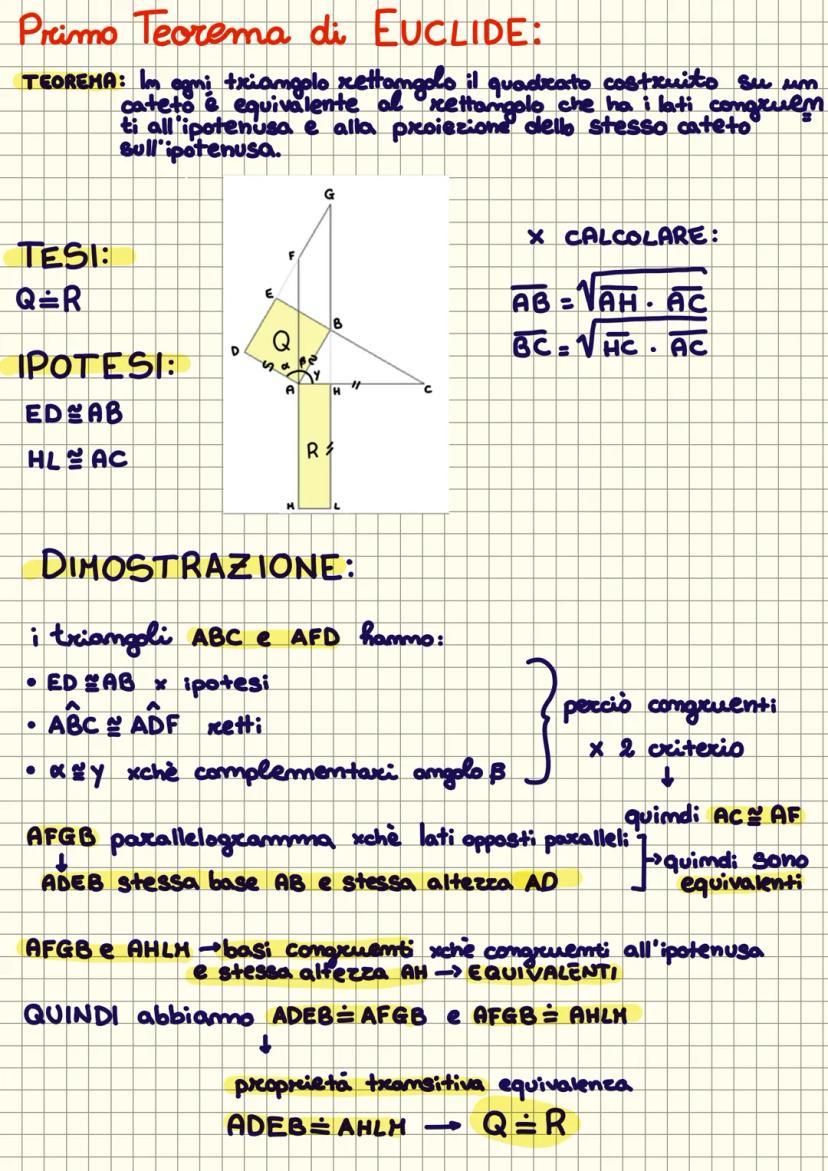 Primo Teorema di EUCLIDE:
TEOREMA: In ogni triangolo rettangolo il quadrato costruito su un
cateto è equivalente al rettangolo che ha i lati congruen
ti all'ipotenusa e alla proiezione dello stesso cateto
sull'ipotenusa.
TESI:
Q≐R
IPOTESI:
ED≅AB
HL≅AC
G
F
E
B
Q
D
S α β
γ
A
H
C
R
M
L
x CALCOLARE:
AB = √AH · AC
BC = √HC · AC
DIMOSTRAZIONE:
i triangoli ABC e AFD hanno:
• ED≅AB x ipotesi
• AB̂C ≅ AD̂F retti
• α≅γ xchè complementari angolo β
perciò congruenti
x 2 criterio
↓
quindi AC≅AF
AFGB parallelogramma xchè lati opposti paralleli
↓
ADEB stessa base AB e stessa altezza AD
→quindi sono
equivalenti
AFGB e AHLM →basi congruenti xchè congruenti all'ipotenusa
e stessa altezza AH → EQUIVALENTI
QUINDI abbiamo ADEB≐AFGB e AFGB≐AHLM
↓
proprietà transitiva equivalenza
ADEB≐AHLM → Q≐R